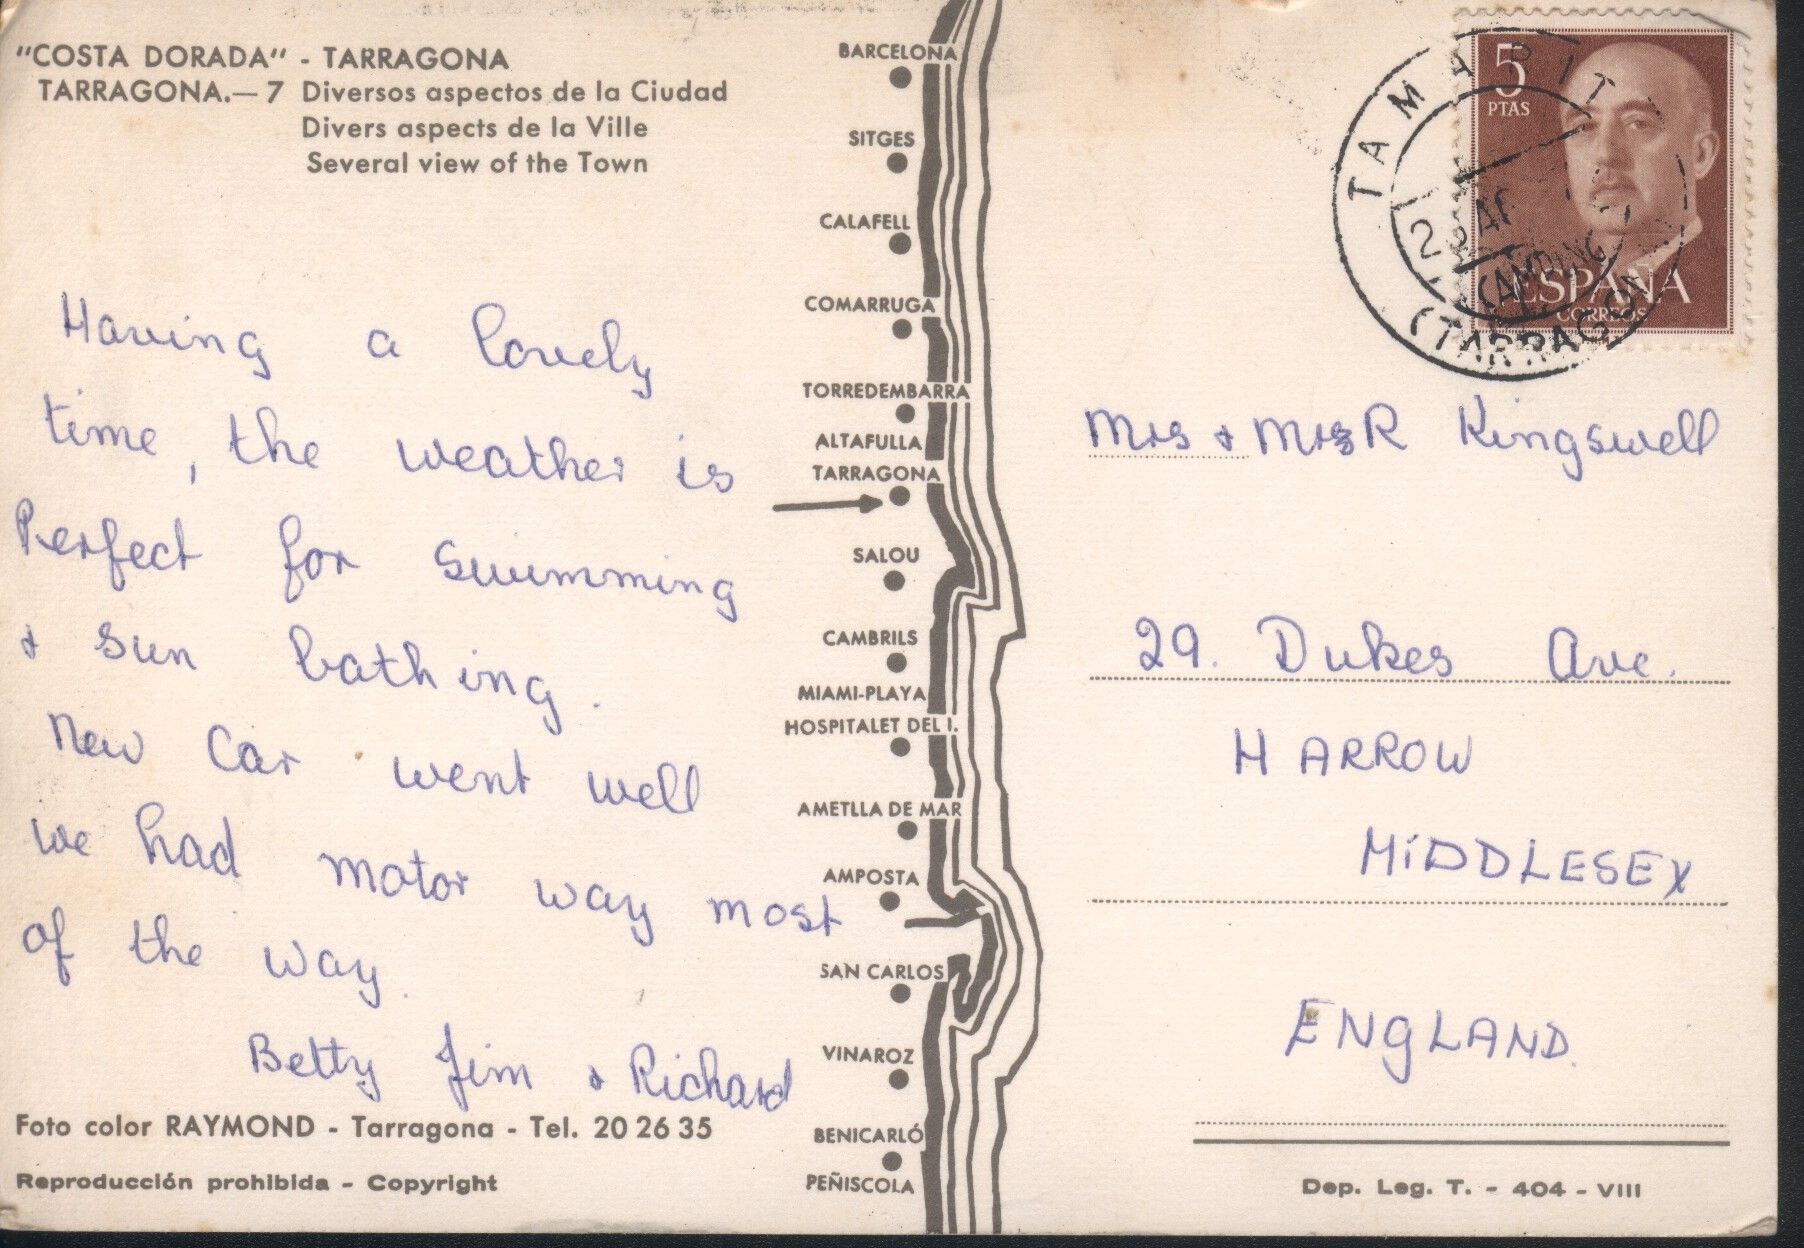 "COSTA DORADA" - TARRAGONA
TARRAGONA.— 7 Diversos aspectos de la Ciudad
Divers aspects de la Ville
Several view of the Town
Having a lovely
time, the weather is
Perfect for swimming
& sun bathing.
New Car went well
we had motor way most
of the way.
Betty Jim & Richard
Foto color RAYMOND - Tarragona - Tel. 20 26 35
Reproducción prohibida - Copyright
BARCELONA
SITGES
CALAFELL
COMARRUGA
TORREDEMBARRA
ALTAFULLA
TARRAGONA
SALOU
CAMBRILS
MIAMI-PLAYA
HOSPITALET DEL I.
AMETLLA DE MAR
AMPOSTA
SAN CARLOS
VINAROZ
BENICARLÓ
PEÑISCOLA
5
PTAS
ESPAÑA
CORREOS
TAMARIT
CAMPING
(TARRAGONA
Mrs & R Kingswell
29. Dukes Ave.
HARROW
MiDDLESEX
ENGLAND.
Dep. Leg. T. - 404 - VIII